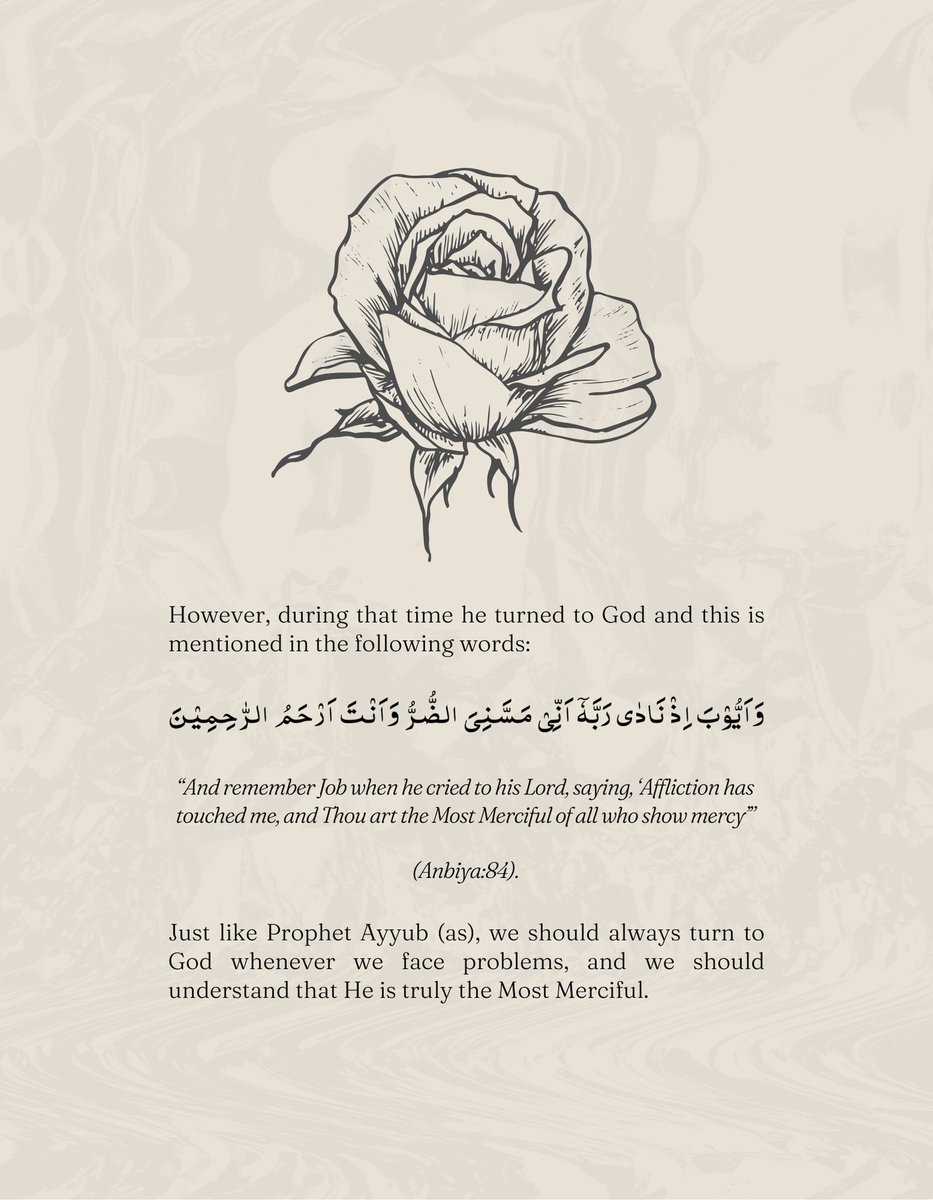 However, during that time he turned to God and this is
mentioned in the following words:
وَاَيُّوْبَ اِذْ نَادٰى رَبَّهٗۤ اَنِّيْ مَسَّنِيَ الضُّرُّ وَاَنْتَ اَرْحَمُ الرّٰحِمِيْنَ
“And remember Job when he cried to his Lord, saying, ‘Affliction has
touched me, and Thou art the Most Merciful of all who show mercy’”
(Anbiya:84).
Just like Prophet Ayyub (as), we should always turn to
God whenever we face problems, and we should
understand that He is truly the Most Merciful.